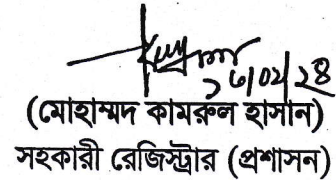 (মোহাম্মদ কামরুল হাসান)
সহকারী রেজিস্ট্রার (প্রশাসন)